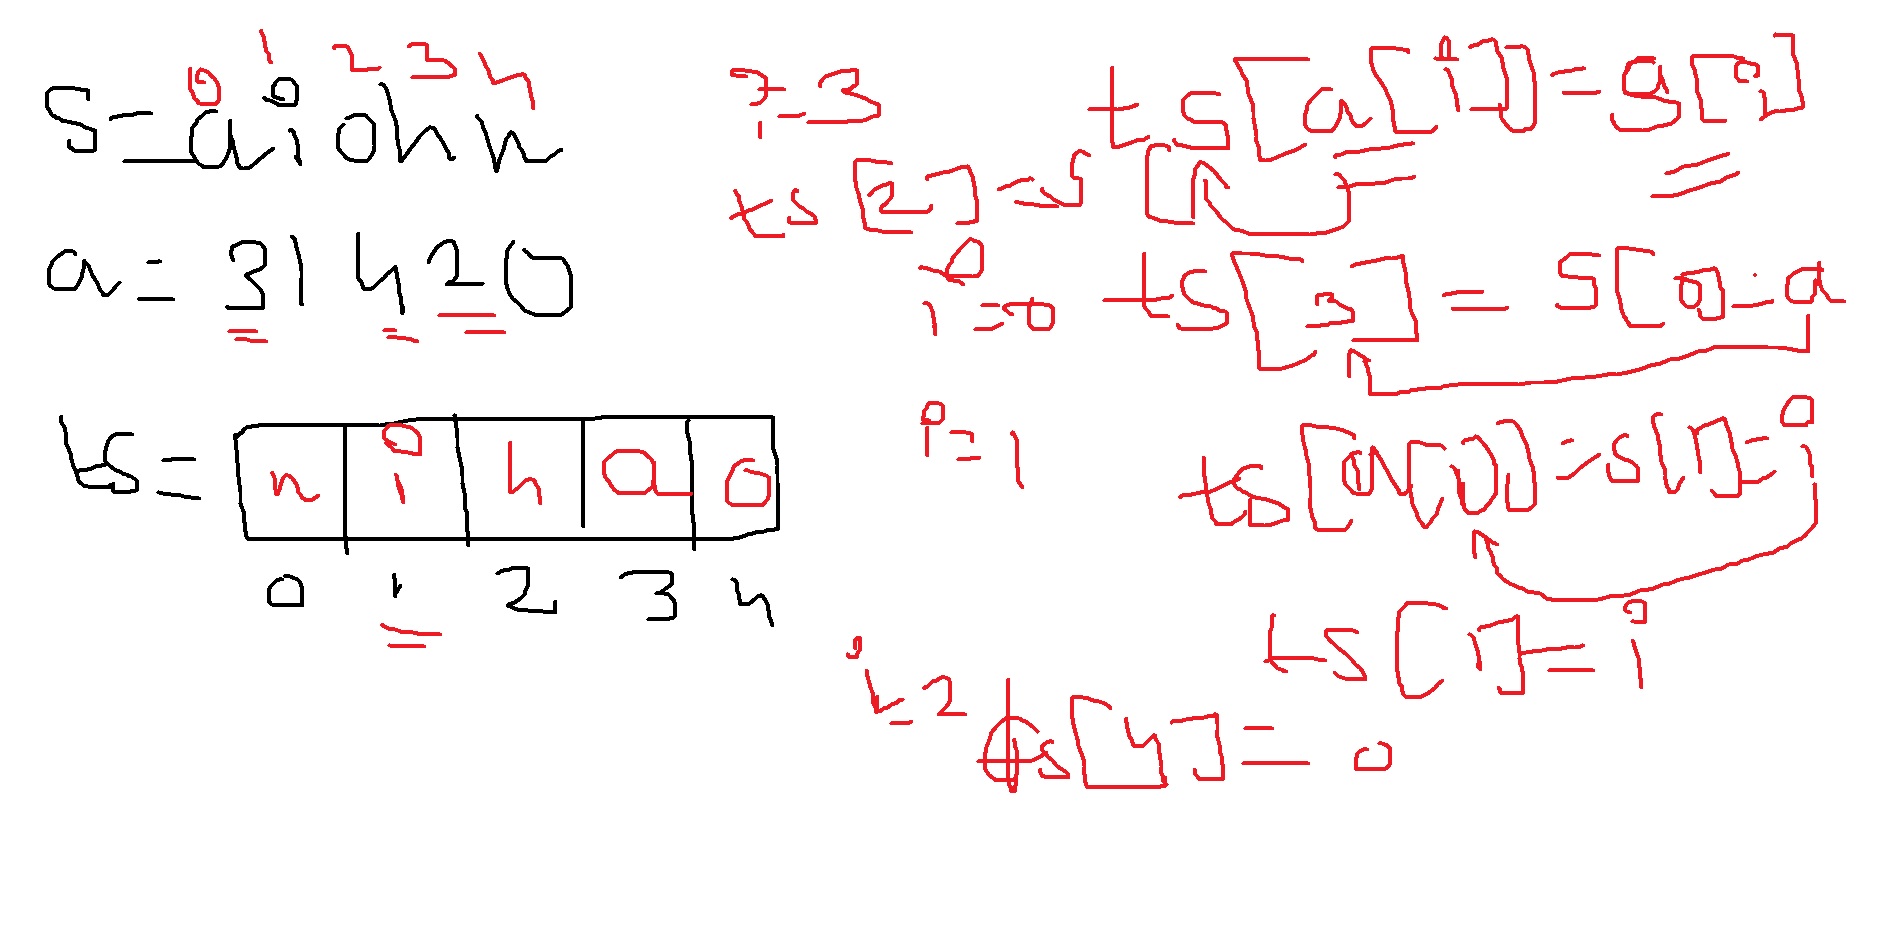 0 1 2 3 4
s = aiohn
a = 31420
ts =
n i h a o
0 1 2 3 4
i = 3
ts[a[i]] = s[i]
ts[2] = s[
i = 0
ts[3] = s[0] = a
i = 1
ts[a[1]] = s[1] = i
ts[1] = i
i = 2
ts[4] = o